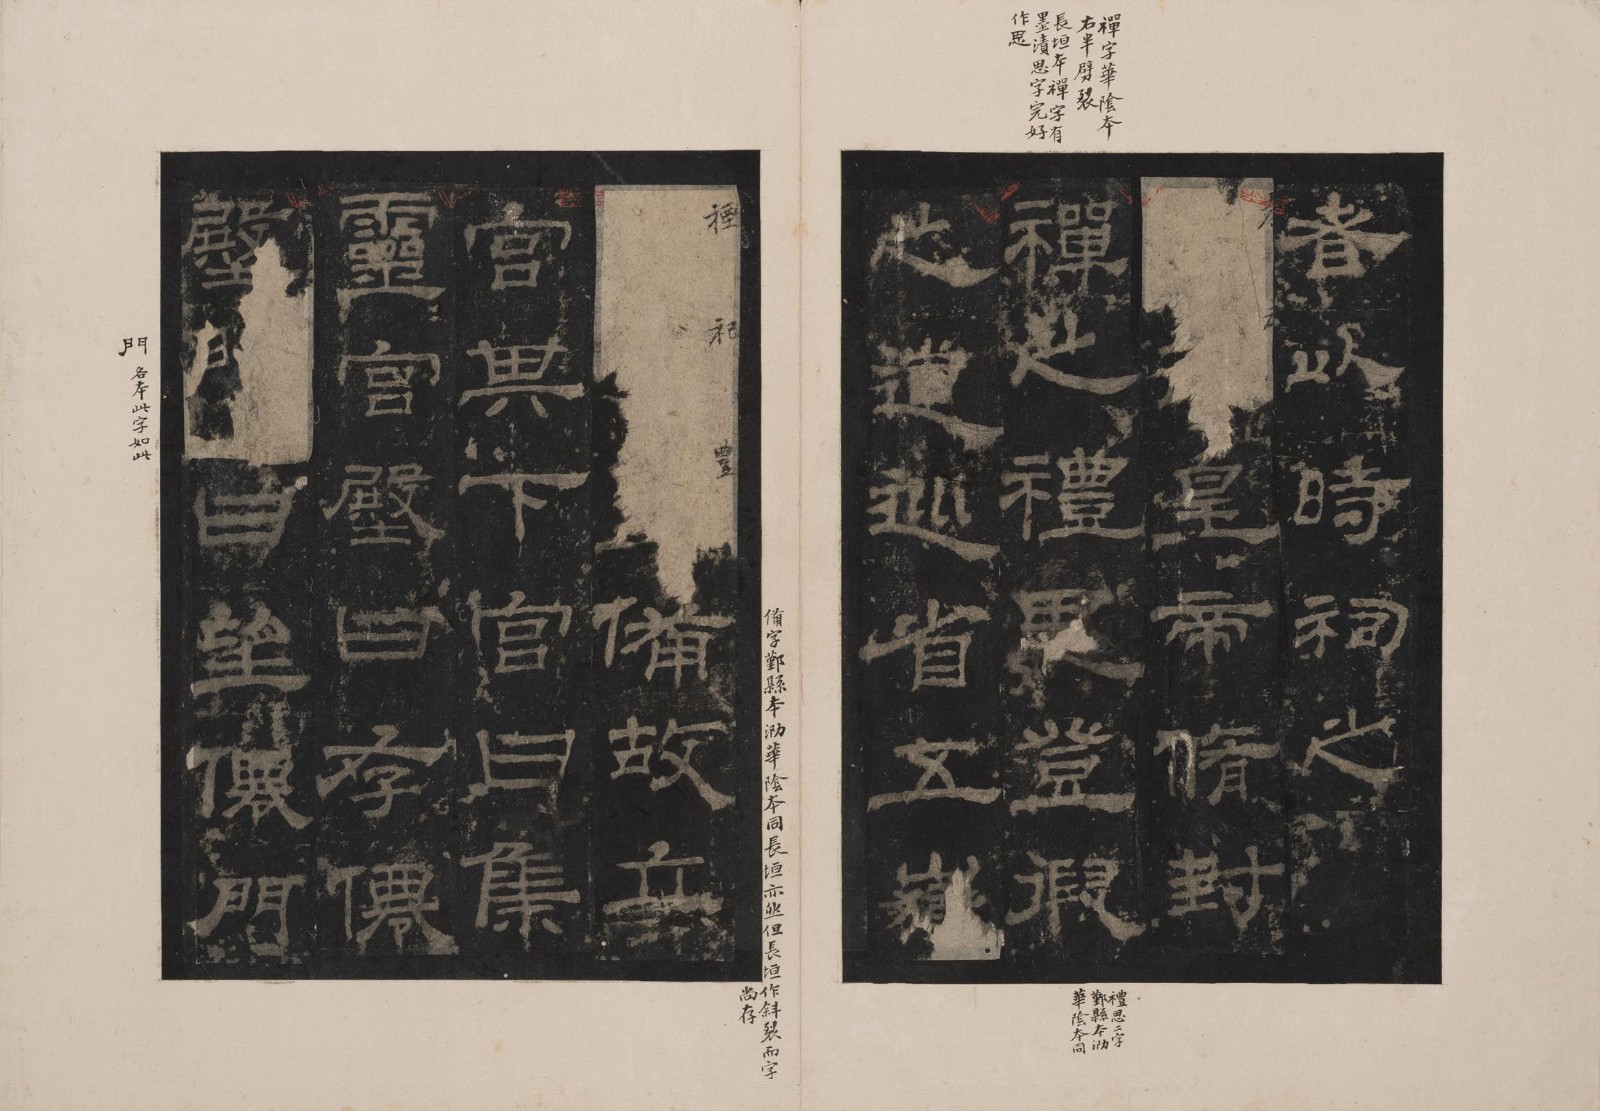 禪字華陰本
右半劈裂
長垣本禪字有
墨漬思字完好
作思
者以時祠之
皇帝脩封
禪之禮思登徦
之道巡省五嶽
禮思二字
鄞縣本泐
華陰本同
禋祀豊備故立
宮其下宮曰集
靈宮殿曰存僊
殿門曰望僊門
備字鄞縣本泐華陰本同長垣亦然但長垣作斜裂而字
尚存
門各本此字如此